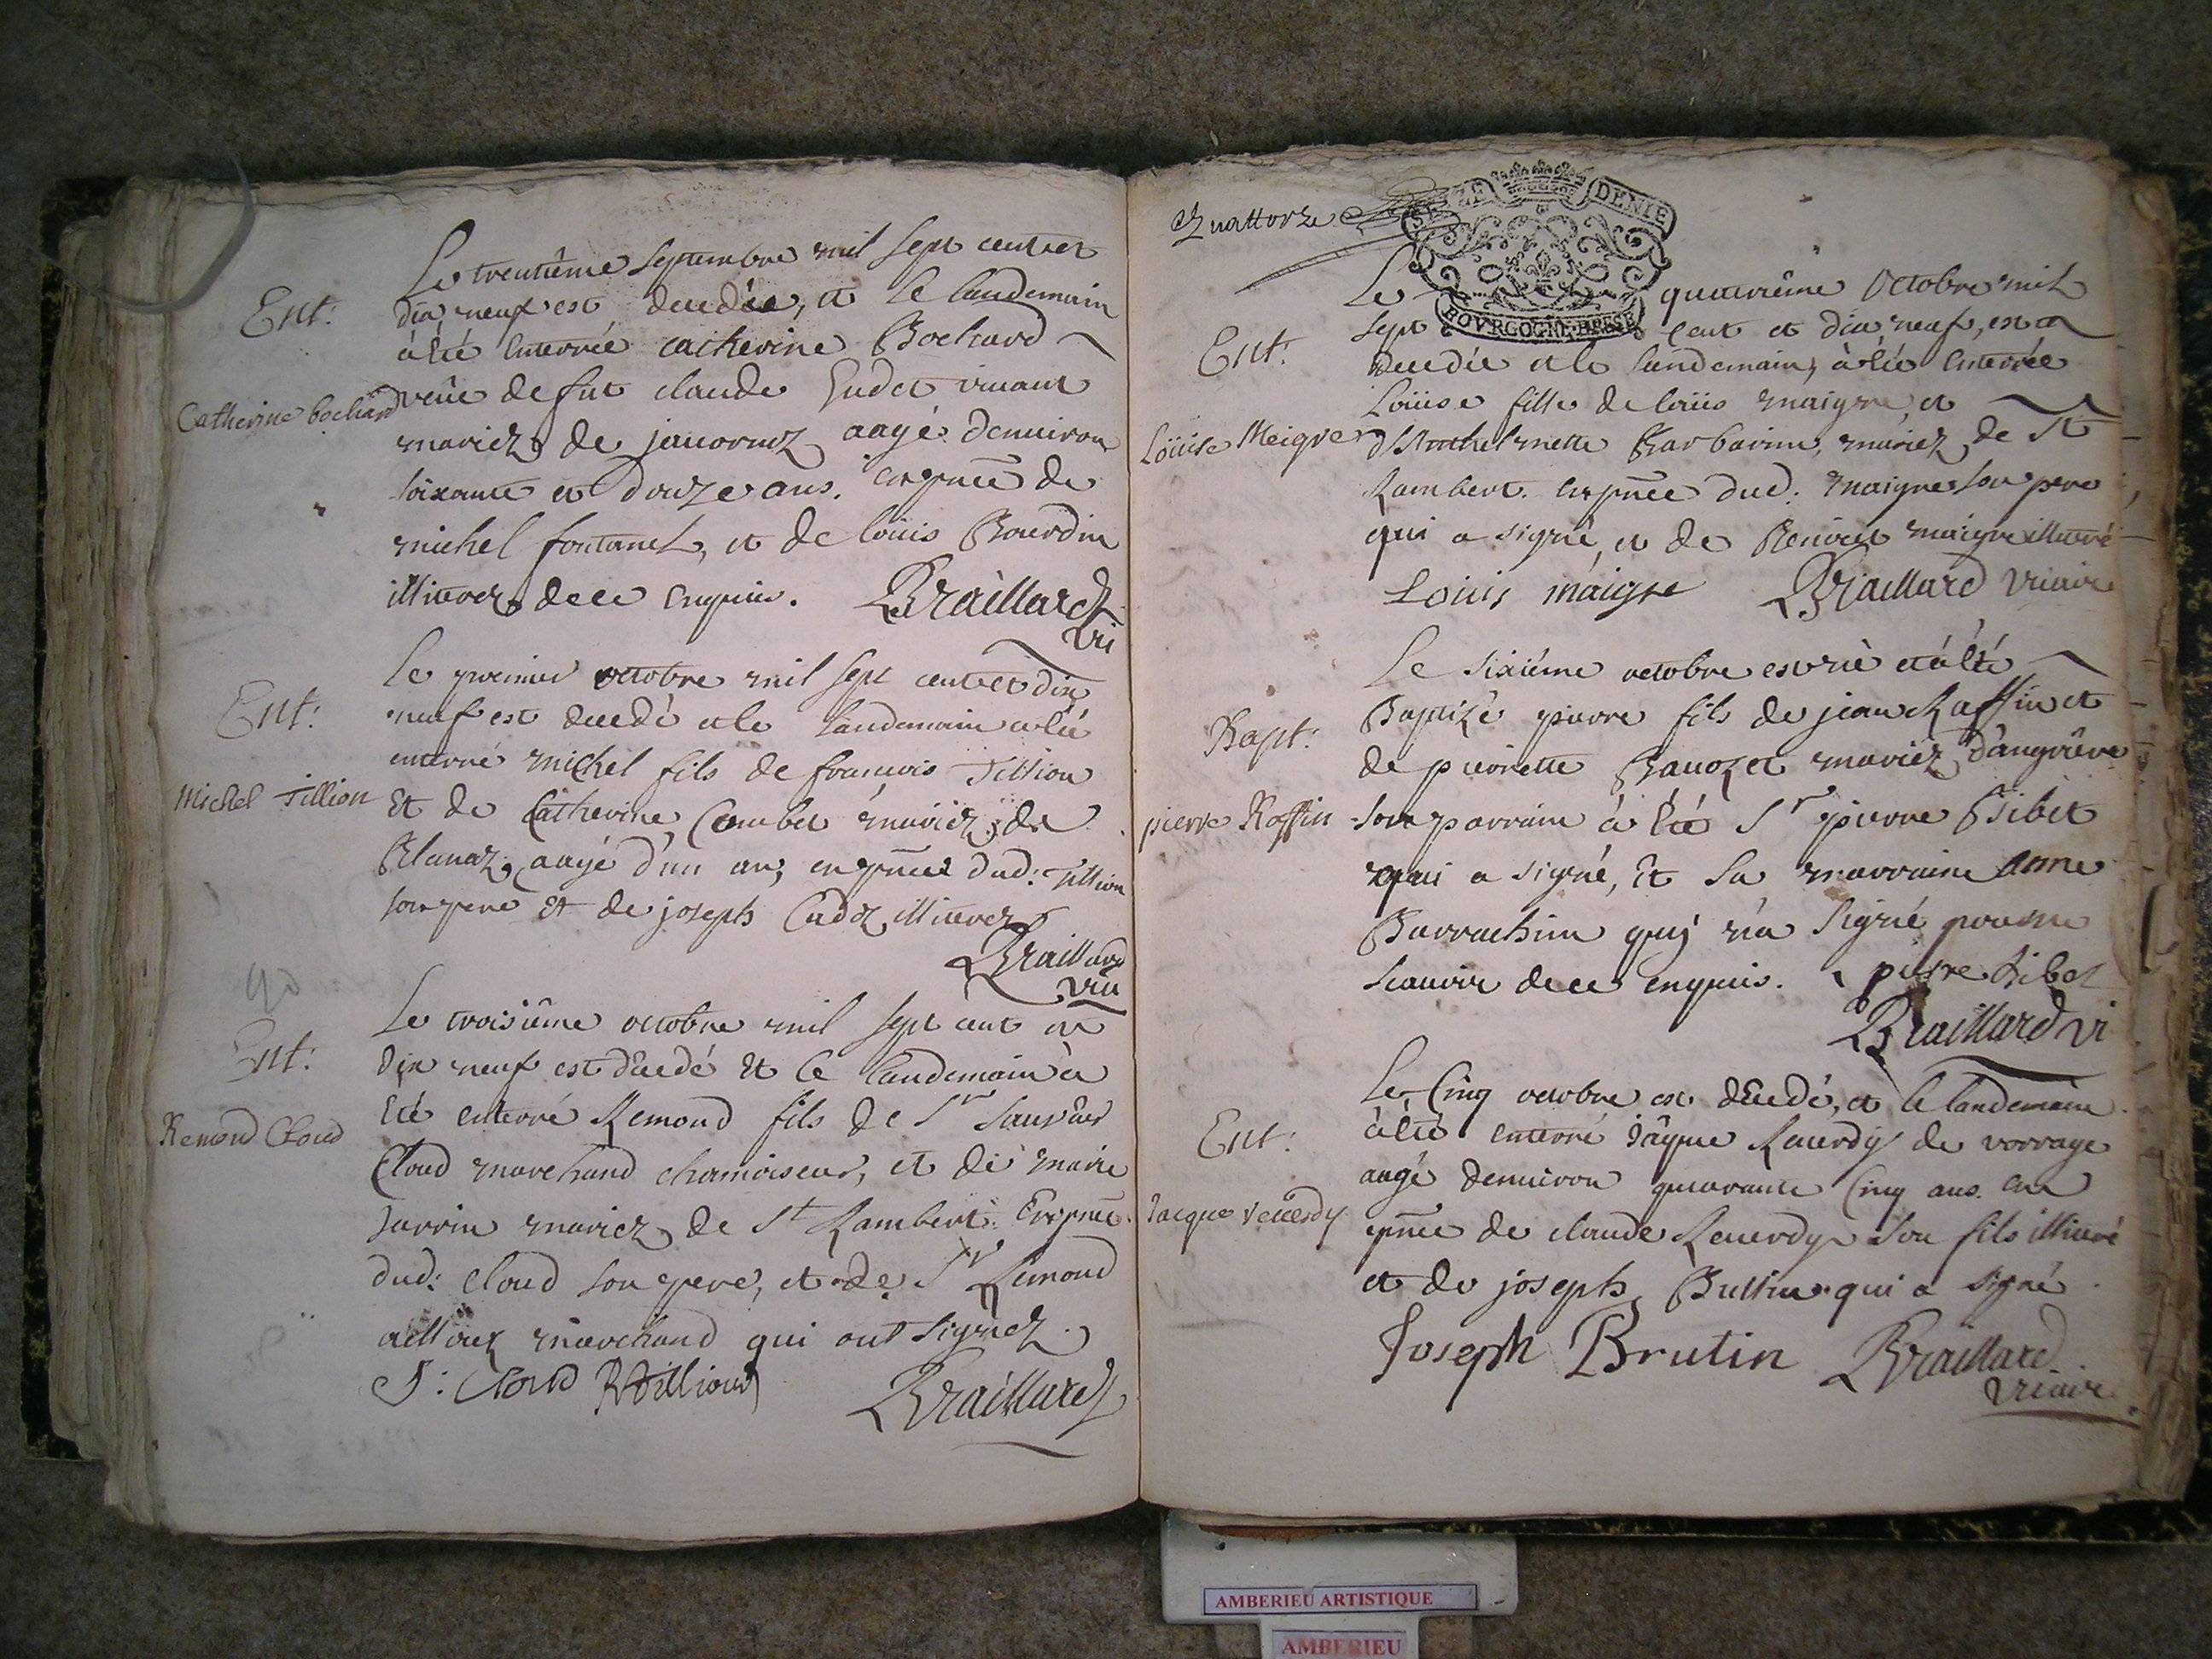 Le trentiême septembre mil sept cent et
Ent:
dix neuf est decedée, et le landemain
à été enterrée catherine Bochard
Catherine bochard
veüe de fut claude Gudet vivant
mariez de janornoz aagé denuiron
soixante et douze ans. en pñce de
michel fontanel, et de loüis Bourdin
illiterez de ce enquis. Braillard
vri
Le premier octobre mil sept cent et dix
Ent:
neuf est decedé et le landemain a été
enterré michel fils de francois Tillion
Michel Tillion
Et de Catherine Combet mariez de
Blanaz, aagé d'un an, en pñce dud: Tillion
son pere Et de joseph Cadoz illiterez
Braillard
vri
Le troisiême octobre mil sept cent et
Ent:
dix neuf est decedé Et le landemain à
Eté enterré Remond fils de Sr
Remond Cloud
Cloud marchand chamoiseur, et de marie
Jarrin mariez de St Rambert. En pñce
dud: Cloud son pere, et de Sr Remond
marchand qui ont signez.
S: Cloud Braillard
Quattorze
DENIE
BOVRGOGNE BRESSE
Le quatriême Octobre mil
sept cent et dix neuf, est
Ent:
decedée et le landemain, à été enterrée
Loüise fille de loüis maigre, et
Loüise Meigre
d'Anthelmette Barbarin, mariez de St
Rambert. en pñce dud: maigre son pere
qui a signé, et de Benoit maigre illiteré
Louis maigre Braillard vicaire
Le sixiéme octobre est né et à été
Bapt:
Baptizé pierre fils de jean Raffin et
de pierrette Bauozet mariez d'angrieve
pierre Raffin
son parrain à été Sr pierre Bibet
qui a signé, Et sa marraine anne
Barrachin quj n'a signé pour ne
scauoir de ce enquis. pierre bibet
Braillard vi
Le Cinq octobre est decedé, et le landemain
Ent:
à été enterré jâque Reuerdy de vorrage
aagé denuiron quarante Cinq ans. en
Jacque reuerdy
pñce de claude Reuerdy son fils illiteré
et de joseph Buttin qui a signé
Joseph Brutin Braillard
vicaire
AMBERIEU ARTISTIQUE
AMBERIEU